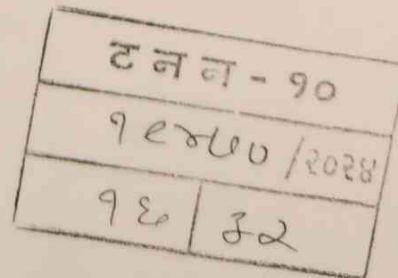 ट न न - १०
१९४५० /२०२४
१६ | ३२